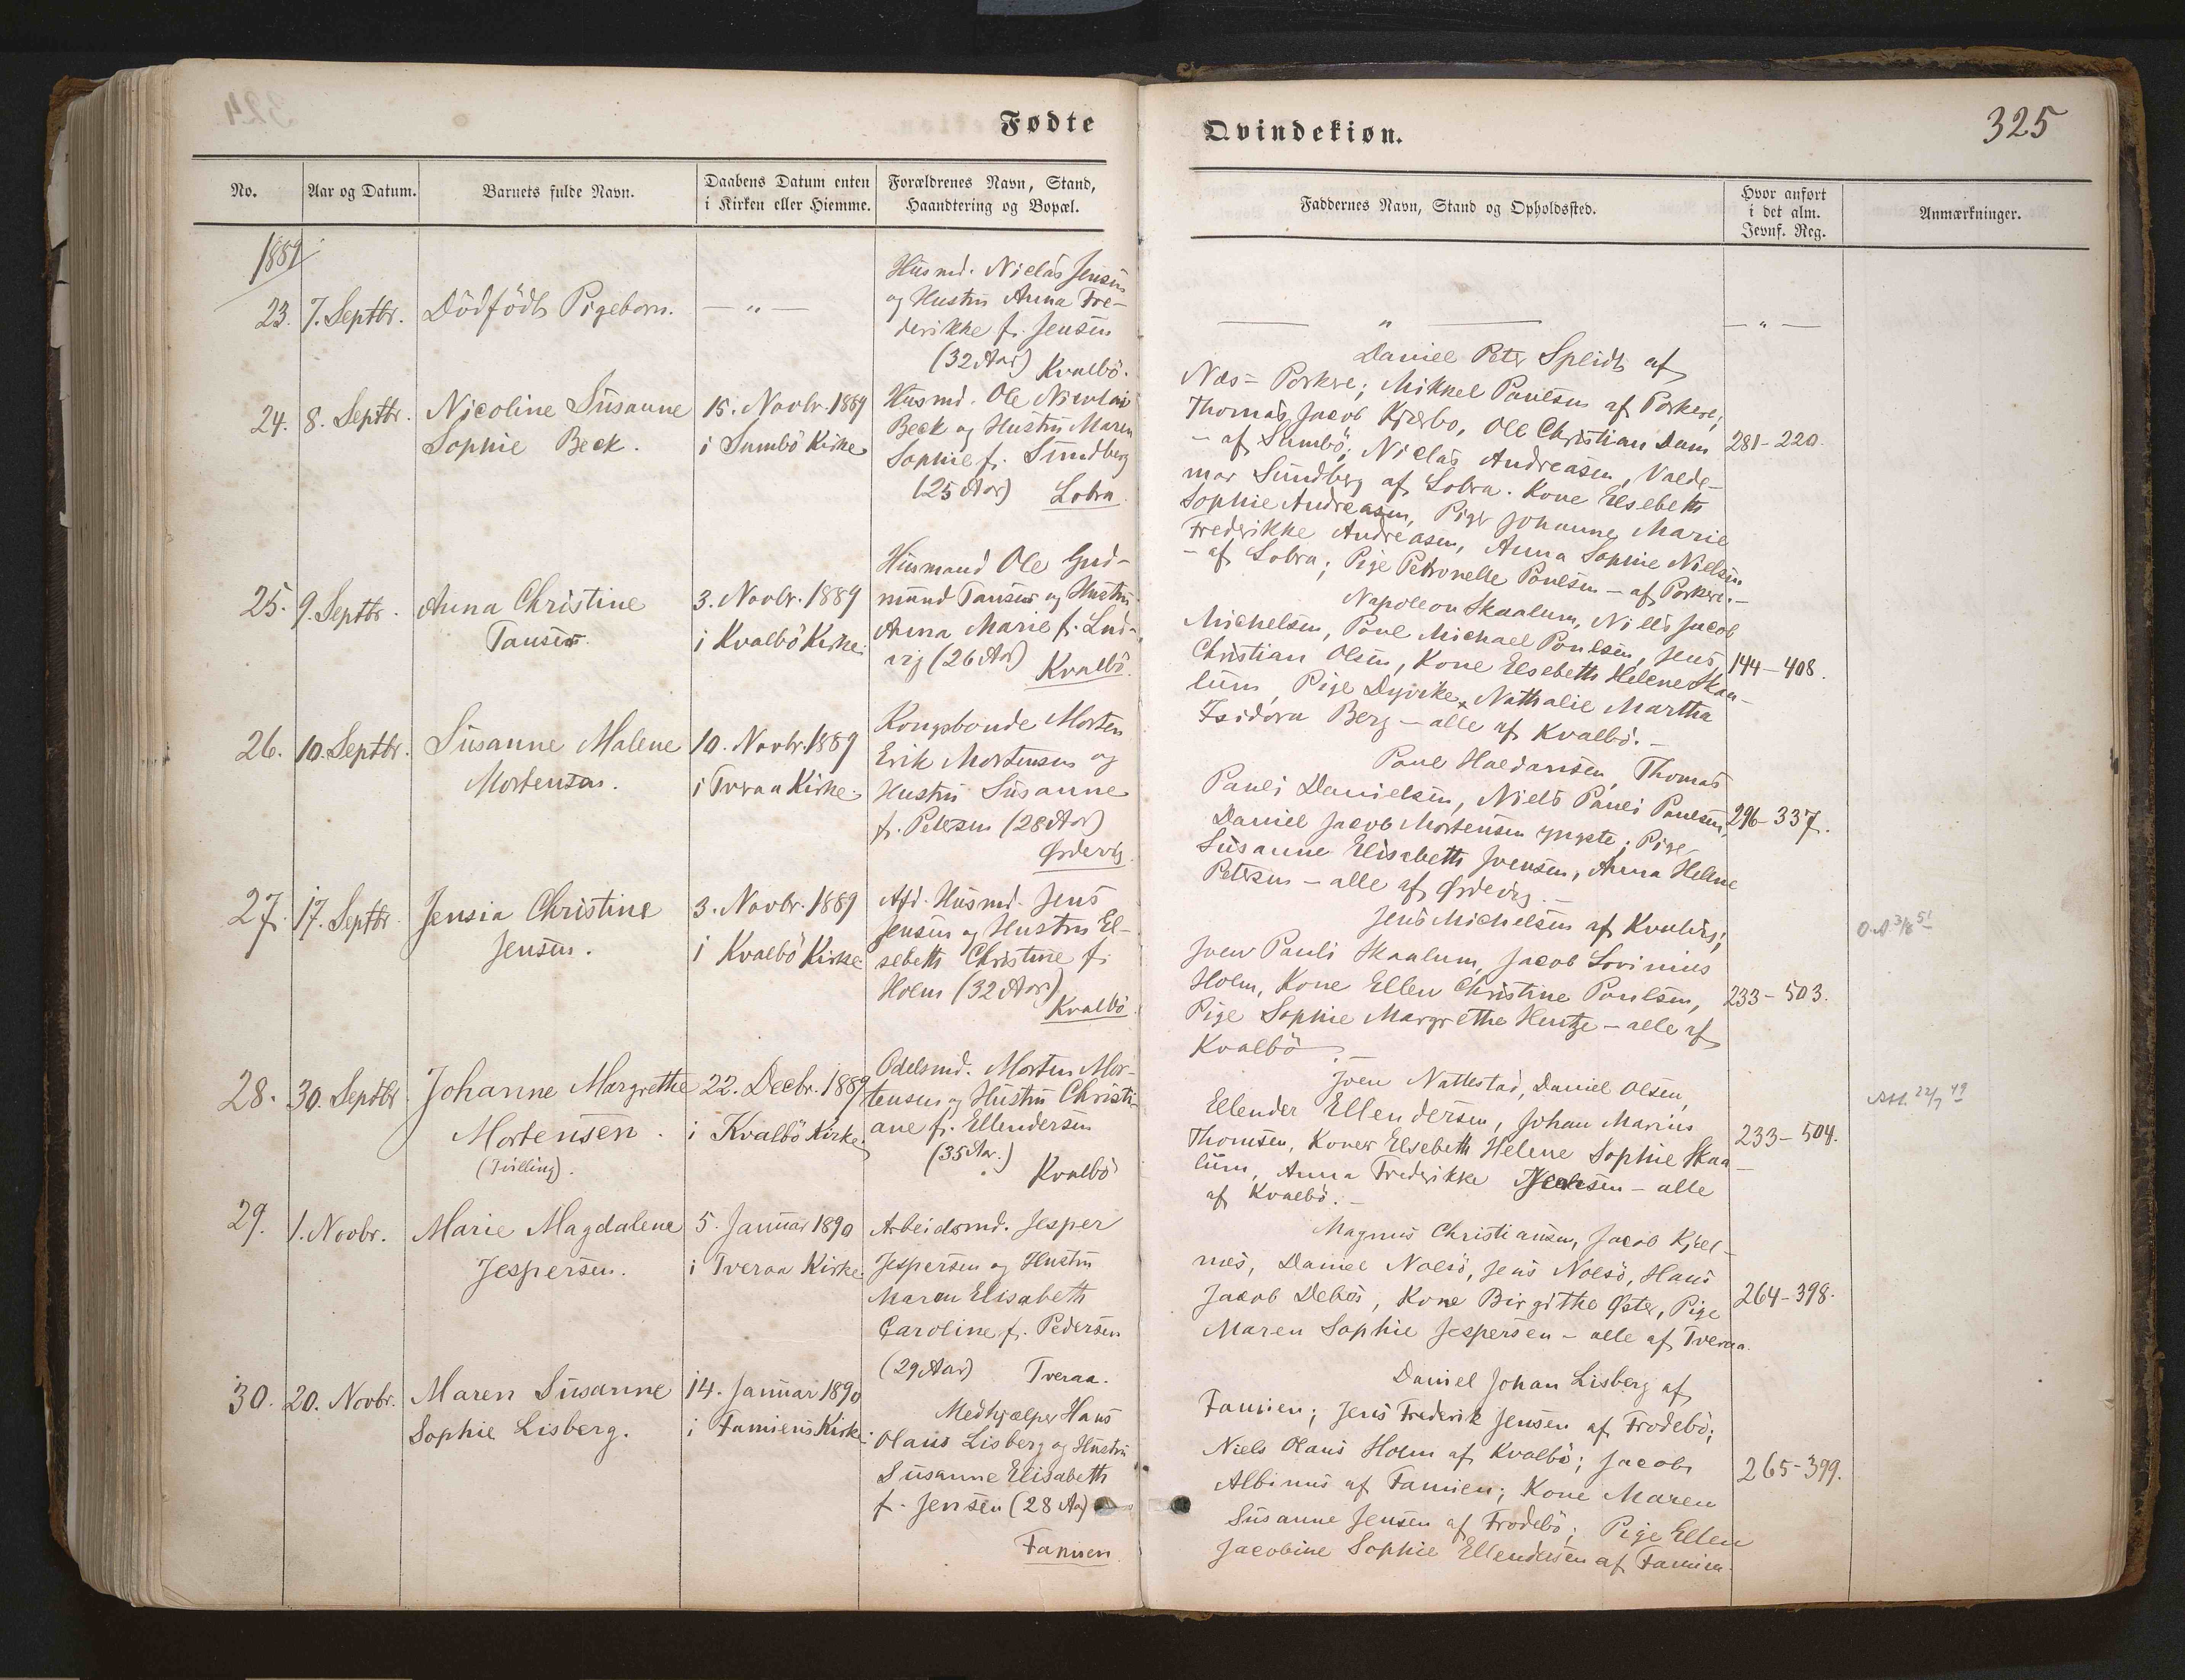 Fødte
Qvindekiøn.
325
No.
Aar og Datum.
Barnets fulde Navn.
Daabens Datum enten
i Kirken eller Hiemme.
Forældrenes Navn, Stand,
Haandtering og Bopæl.
Faddernes Navn, Stand og Opholdssted.
Hvor anført
i det alm.
Jevnf. Reg.
Anmærkninger.
1889
23. 7. Septbr. Dödfödt Pigebarn. — " —
Husmd. Niclas Jensen
og Hustru Anna Fre-
derikke f. Jensen
(32 Aar) Kvalbö.
— " —
— " —
24. 8. Septbr. Nicoline Susanne
Sophie Beck.
15. Novbr. 1889
i Sumbö Kirke
Husmd. Ole Nicolai
Beck og Hustru Maren
Sophie f. Sundberg
(25 Aar) Lobra.
Daniel Peter Splidt af
Næs-Porkere; Mikkel Poulsen af Porkere;
Thomas Jacob Kjærbo, Ole Christian Dam
– af Sumbö; Niclas Andreasen, Valde-
mar Sundberg af Lobra. Kone Elsebeth
Sophie Andreasen, Piger Johanne Marie
Frederikke Andreasen, Anna Sophie Nielsen
– af Lobra; Pige Petronelle Poulsen – af Porkere. –
281–220.
25. 9. Septbr. Anna Christine
Tausen.
3. Novbr. 1889
i Kvalbö Kirke.
Husmand Ole Gud-
mund Tausen og Hustru
Anna Marie f. Lud-
vig (26 Aar) Kvalbö.
Napoleon Skaalum, Niels Jacob
Michelsen, Poul Michael Poulsen, Jens
Christian Olsen, Kone Elsebeth Helene Skaa-
lum, Pige Dyvike Nathalie Martha
Isidora Berg – alle af Kvalbö. –
144–408.
26. 10. Septbr. Susanne Malene
Mortensen.
10. Novbr. 1889
i Tveraa Kirke.
Kongsbonde Morten
Erik Mortensen og
Hustru Susanne
f. Petersen (28 Aar)
Ørdevig.
Poul Haldansen, Thomas
Pauli Danielsen, Niels Pauli Poulsen,
Daniel Jacob Mortensen yngste; Piger
Susanne Elisabeth Joensen, Anna Helene
Petersen – alle af Ørdevig. –
296–337.
27. 17. Septbr. Jensia Christine
Jensen.
3. Novbr. 1889
i Kvalbö Kirke
Afd. Husmd. Jens
Jensen og Hustru El-
sebeth Christine f.
Holm (32 Aar)
Kvalbö.
Jens Michelsen af Kvalvig;
Joen Pauli Skaalum, Jacob Sovinius
Holm, Kone Ellen Christine Poulsen,
Pige Sophie Margrethe Hentze – alle af
Kvalbö. –
233–503.
28. 30. Septbr. Johanne Margrethe
Mortensen.
(Tvilling).
22. Decbr. 1889
i Kvalbö Kirke.
Odelsmd. Morten Mor-
tensen og Hustru Christi-
ane f. Ellendersen
(35 Aar.)
Kvalbö
Joen Nattestad, Daniel Olsen,
Ellender Ellendersen, Johan Marius
Thomsen, Koner Elsebeth Helene Sophie Skaa-
lum, Anna Frederikke – alle
af Kvalbö. –
233–504.
29. 1. Novbr. Marie Magdalene
Jespersen.
5. Januar 1890
i Tveraa Kirke.
Arbeidsmd. Jesper
Jespersen og Hustru
Maren Elisabeth
Caroline f. Pedersen
(29 Aar) Tveraa.
Magnus Christiansen, Jacob Kjæl-
næs, Daniel Nolsö, Jens Nolsö, Hans
Jacob Debös, Kone Birgithe Øster, Pige
Maren Sophie Jespersen – alle af Tveraa.
264–398.
30. 20. Novbr. Maren Susanne
Sophie Lisberg.
14. Januar 1890
i Famiens Kirke.
Medhjælper Hans
Olaus Lisberg og Hustru
Susanne Elisabeth
f. Jensen (28 Aar)
Famien.
Daniel Johan Lisberg af
Famien; Jens Frederik Jensen af Frodebö;
Niels Olaus Holm af Kvalbö; Jacob
Albinus af Famien; Kone Maren
Susanne Jensen af Frodebö; Pige Ellen
Jacobine Sophie Ellendersen af Famien.
265–399.